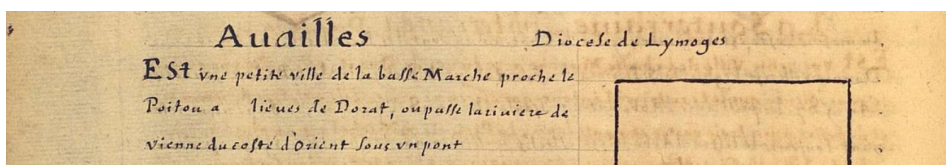 Auailles
Diocese de Lymoges
ESt vne petite ville de la basse Marche proche le
Poitou a lieues de Dorat, ou passe la riuiere de
vienne du coste d'Orient sous vn pont